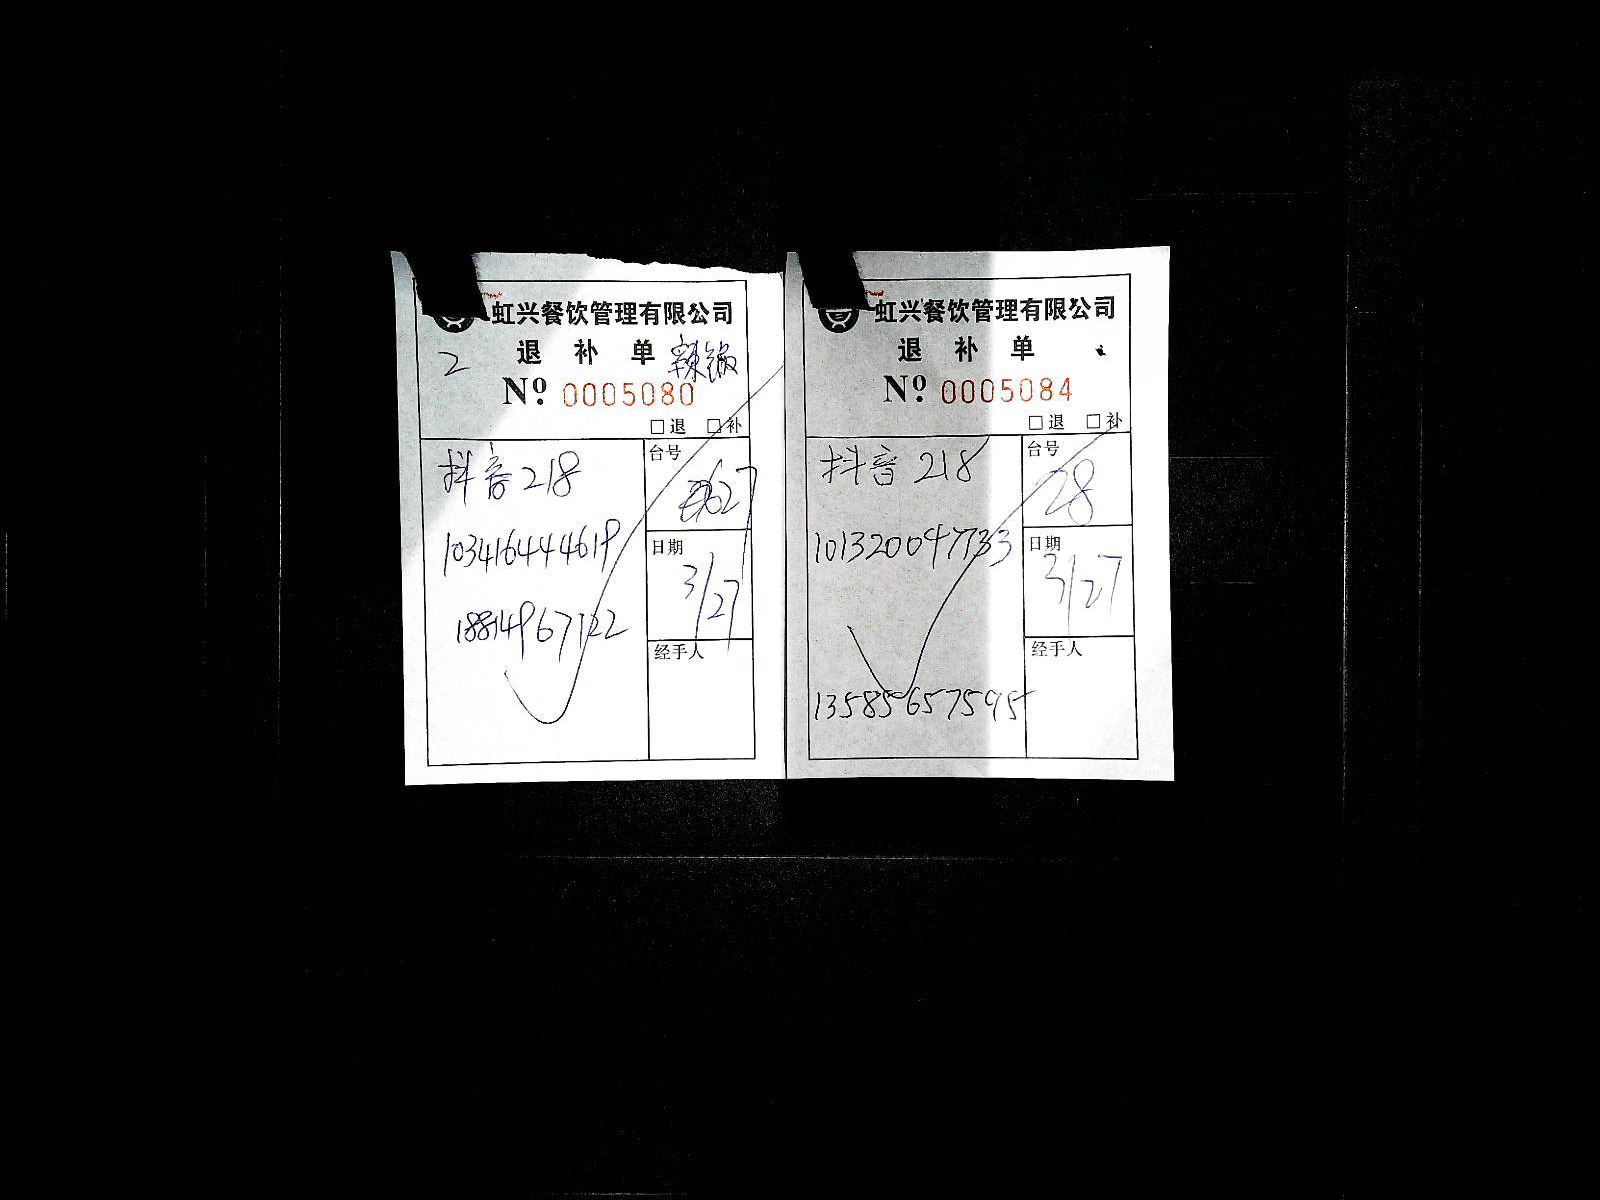 虹兴餐饮管理有限公司
2 退补单 辣锅
Nº 0005080
□退 □补
抖音218
台号
627
103416444619
日期
3/27
18814967122
经手人
虹兴餐饮管理有限公司
退补单
Nº 0005084
□退 □补
抖音218
台号
28
101320047733
日期
3/27
经手人
13585657595